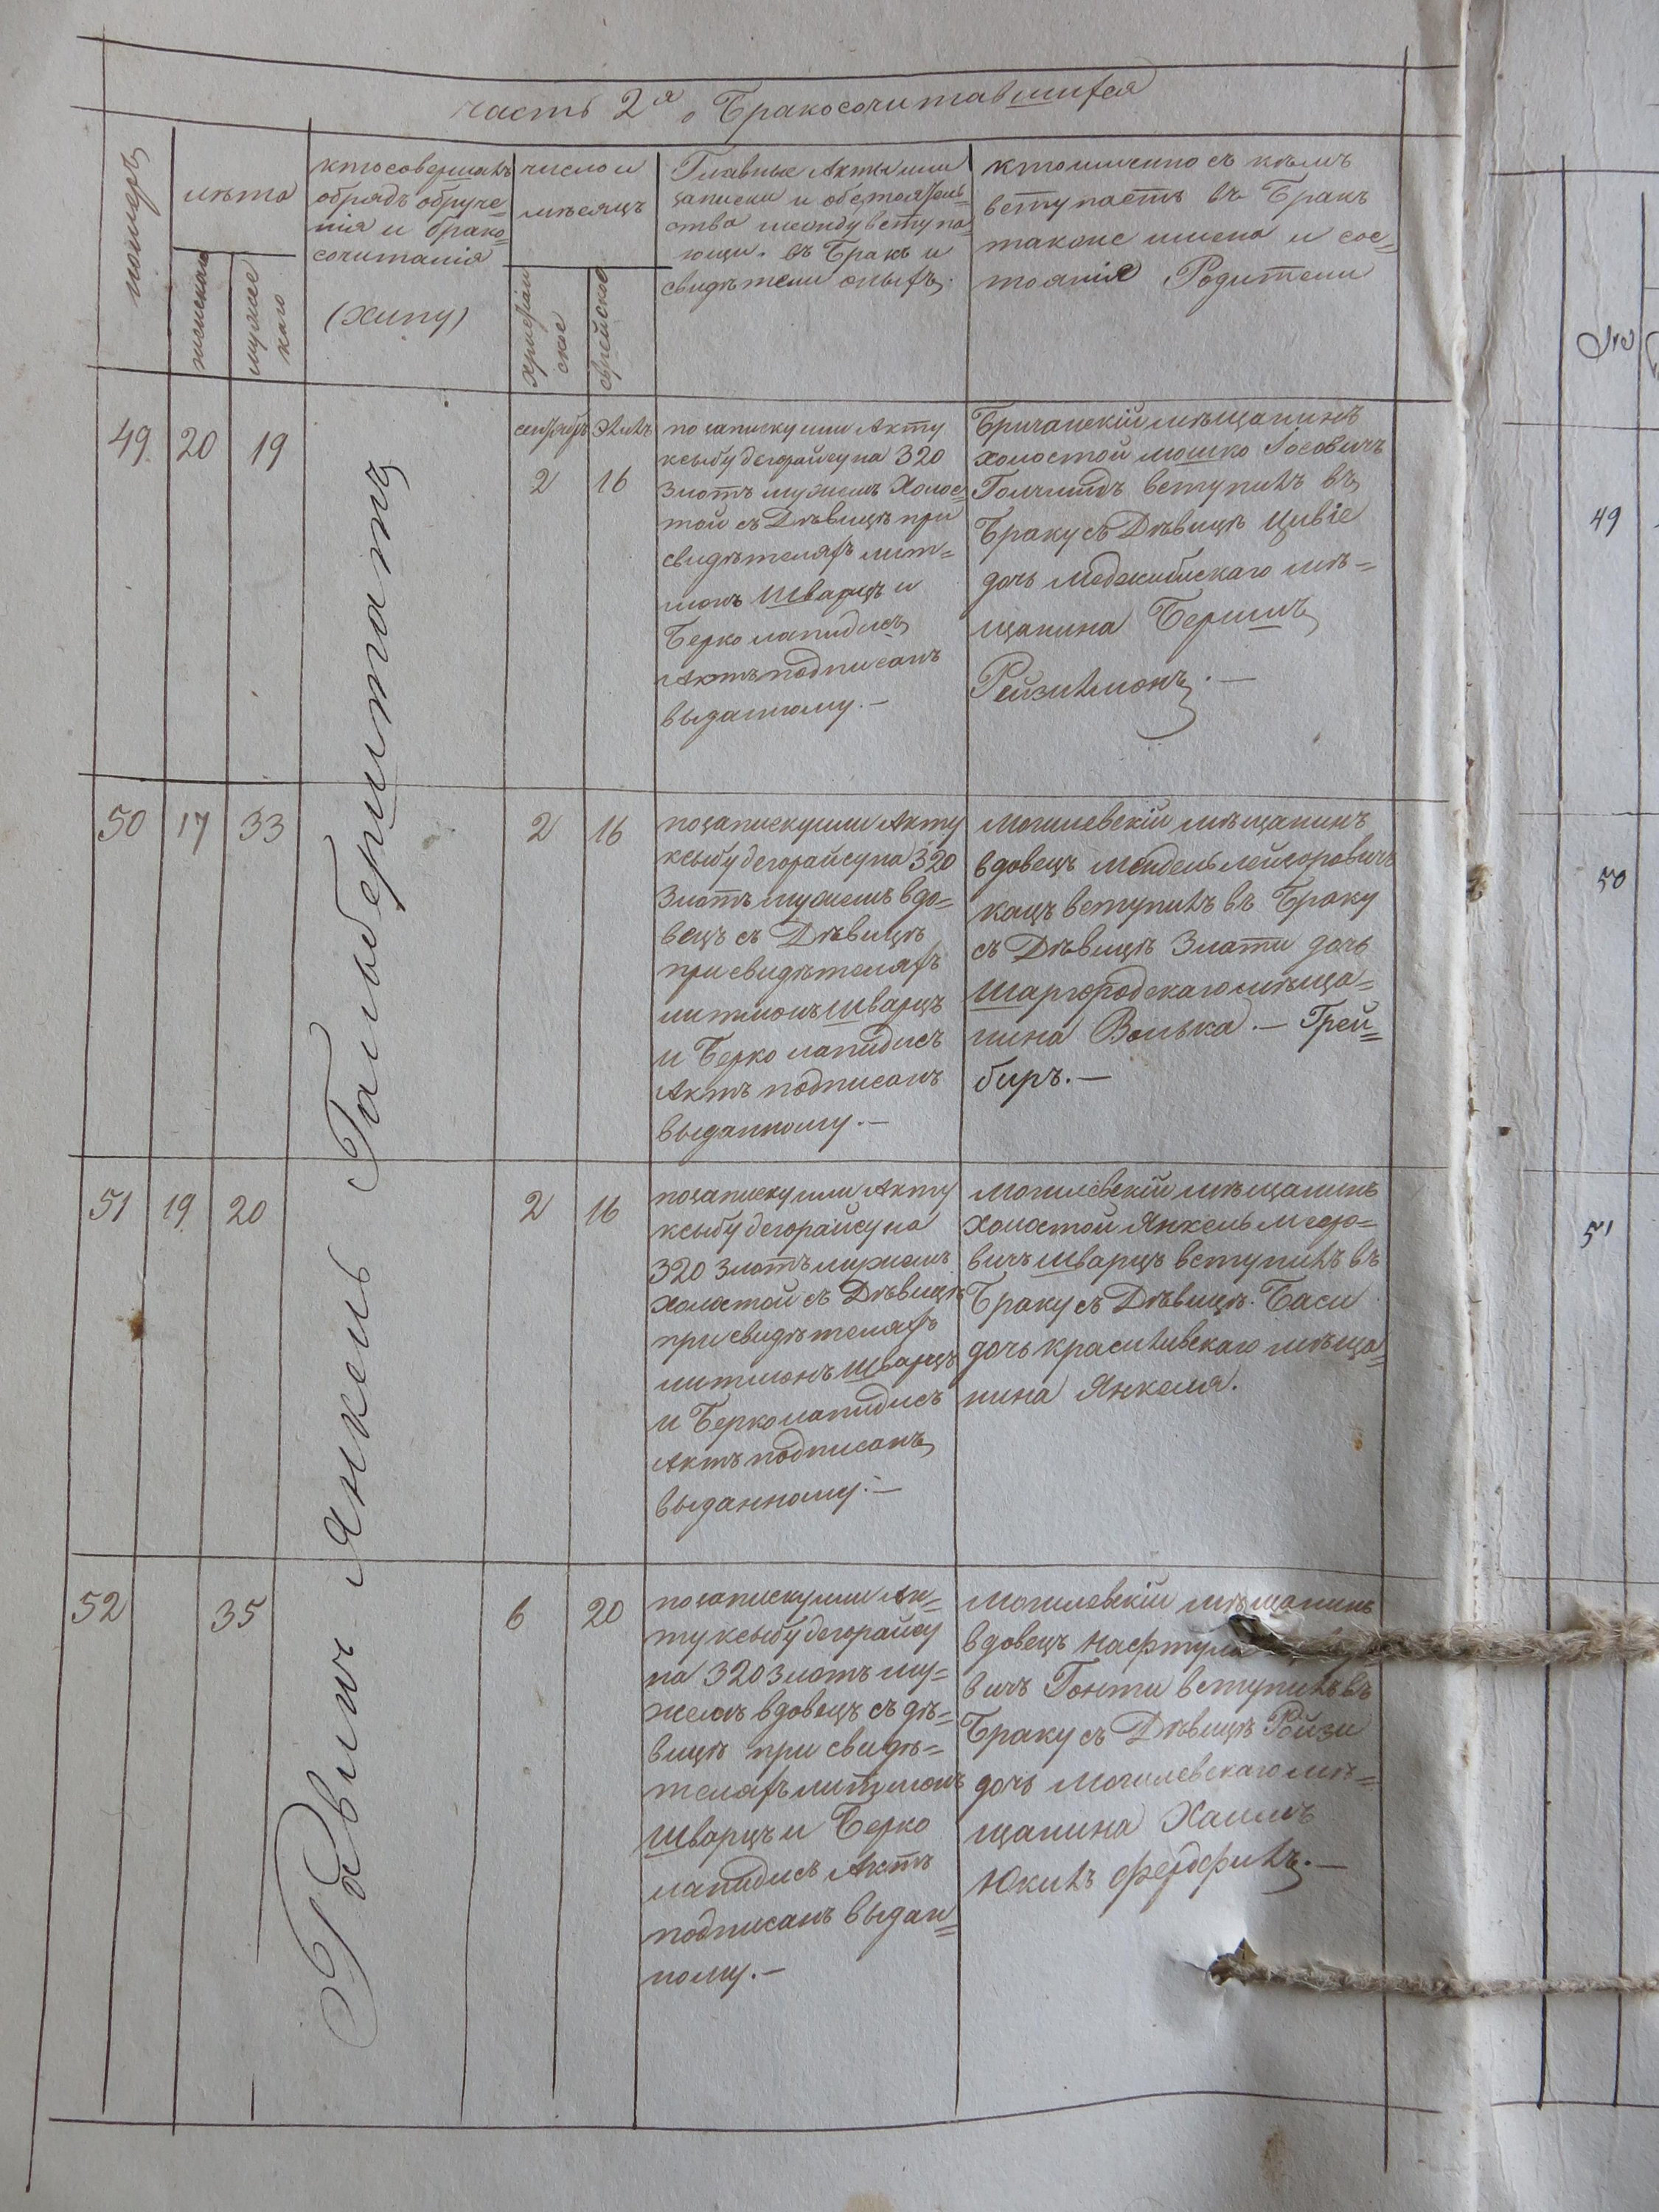 часть 2я о Бракосочитавшихся
номеръ
лѣта
женская
мужескаго
кто совершалъ
обрядъ обруче=
нія и брако=
сочитанія
(хипу)
число и
мѣсяцъ
христіан
ское
еврейское
Главные Акты или
записки и обстоятель=
ства между вступа=
ющи. въ Бракъ и
свидѣтели оныхъ.
кто имянно съ кѣмъ
вступаетъ въ Бракъ
такоже имена и сос=
тоянія Родители
Равинъ Янкель Гальберштатъ
49
20
19
сентябръ
2
Элилъ
16
по записку или Акту
ксыбу дегорайсу на 320
Злотъ мужемъ Холос=
той съ Дѣвицѣ при
свидѣтеляхъ лит=
монъ Шварцъ и
Берко лапидисъ
Актъ подписанъ
выданному. —
Бричанскій мѣщанинъ
холостой мошко Іосовичъ
вступилъ въ
Браку съ Дѣвицѣ Цивіе
дочь Меджибискаго мѣ=
щанина Бершъ
Рейзилмонъ. —
50
17
33
2
16
по записку или Акту
ксыбу дегорайсу на 320
Злотъ мужемъ вдо=
вецъ съ Дѣвицѣ
при свидѣтеляхъ
литмонъ Шварцъ
и Берко лапидисъ
Актъ подписанъ
выданному. —
Могилевскій мѣщанинъ
вдовецъ Мендель лейзоровичъ
кацъ вступилъ въ Браку
съ Дѣвицѣ Злати дочь
Шаргородскаго мѣща=
нина Волька. — Грей=
биръ. —
51
19
20
2
16
по записку или Акту
ксыбу дегорайсу на
320 Злотъ мужемъ
холостой съ Дѣвицѣ
при свидѣтеляхъ
литмонъ Шварцъ
и Берко лапидисъ
Актъ подписанъ
выданному. —
Могилевскій мѣщанинъ
холостой Янкель
вичъ Шварцъ вступилъ въ
Браку съ Дѣвицѣ. Баси
дочь красиливскаго мѣща=
нина Янкеля.
52
35
6
20
по записку или Ак=
ту ксыбу дегорайсу
на 320 злотъ му=
жемъ вдовецъ съ дѣ=
вицѣ при свидѣ=
теляхъ литмонъ
Шварцъ и Берко
лапидисъ Актъ
подписанъ выдан=
ному. —
Могилевскій мѣщанинъ
вдовецъ Нафтула
вичъ Гонти вступилъ въ
Браку съ Дѣвицѣ Рейзи
дочь Могилевскаго мѣ=
щанина Хаимъ
Юкилъ Фердфилъ. —
№
49
50
51